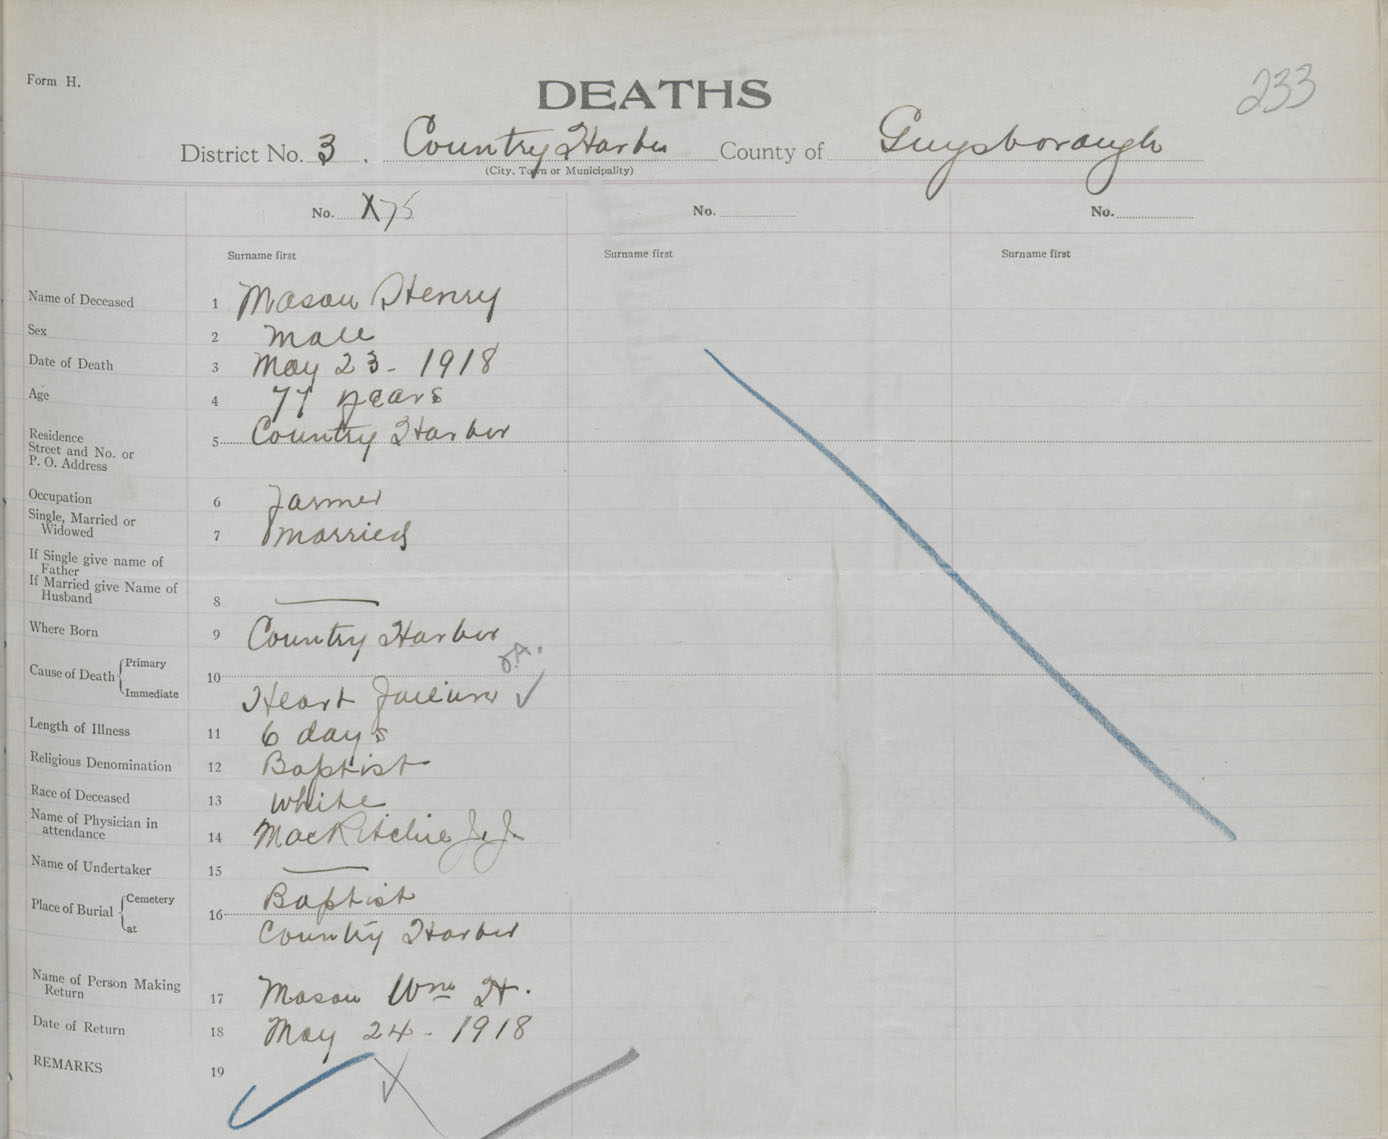 Form H.
DEATHS
233
District No. 3. Country Harbor County of Guysborough
(City, Town or Municipality)
No. X 75 No. No.
Surname first Surname first Surname first
Name of Deceased 1 Mason Henry
Sex 2 Male
Date of Death 3 May 23 - 1918
Age 4 77 years
Residence
Street and No. or
P. O. Address 5 Country Harbor
Occupation 6 Farmer
Single, Married or
Widowed 7 Married
If Single give name of
Father
If Married give Name of
Husband 8 —
Where Born 9 Country Harbor
D.A.
Cause of Death Primary 10
Immediate Heart Failure ✓
Length of Illness 11 6 days
Religious Denomination 12 Baptist
Race of Deceased 13 White
Name of Physician in
attendance 14 MacRitchie J. J.
Name of Undertaker 15 —
Place of Burial Cemetery 16 Baptist
at Country Harbor
Name of Person Making
Return 17 Mason Wm H.
Date of Return 18 May 24 - 1918
REMARKS 19